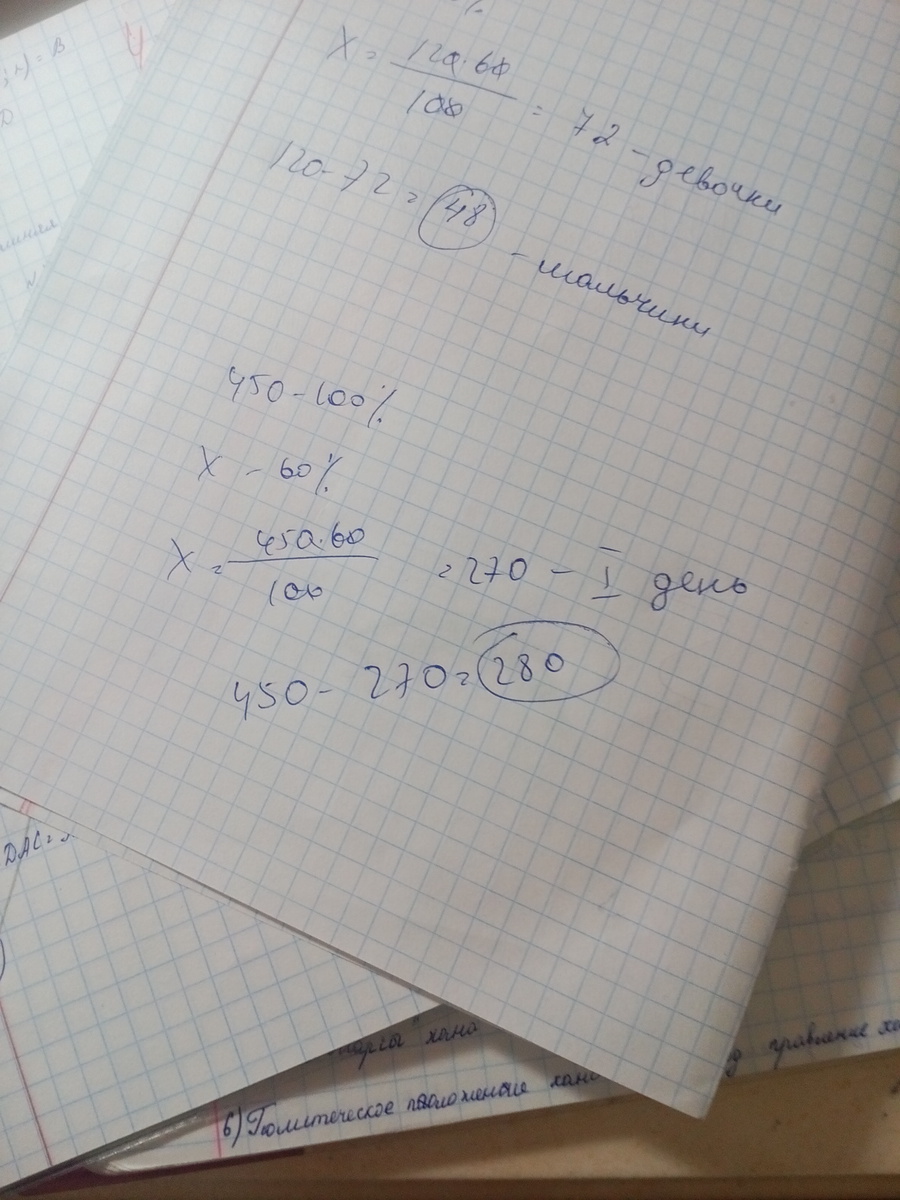 %
X = 120·60
100
= 72 - девочки
120-72 = 48 - мальчики
450-100%
X - 60%
X = 450·60
100
= 270 - I день
450 - 270 = 280
DAC =
хана
6) Политическое положение
правление